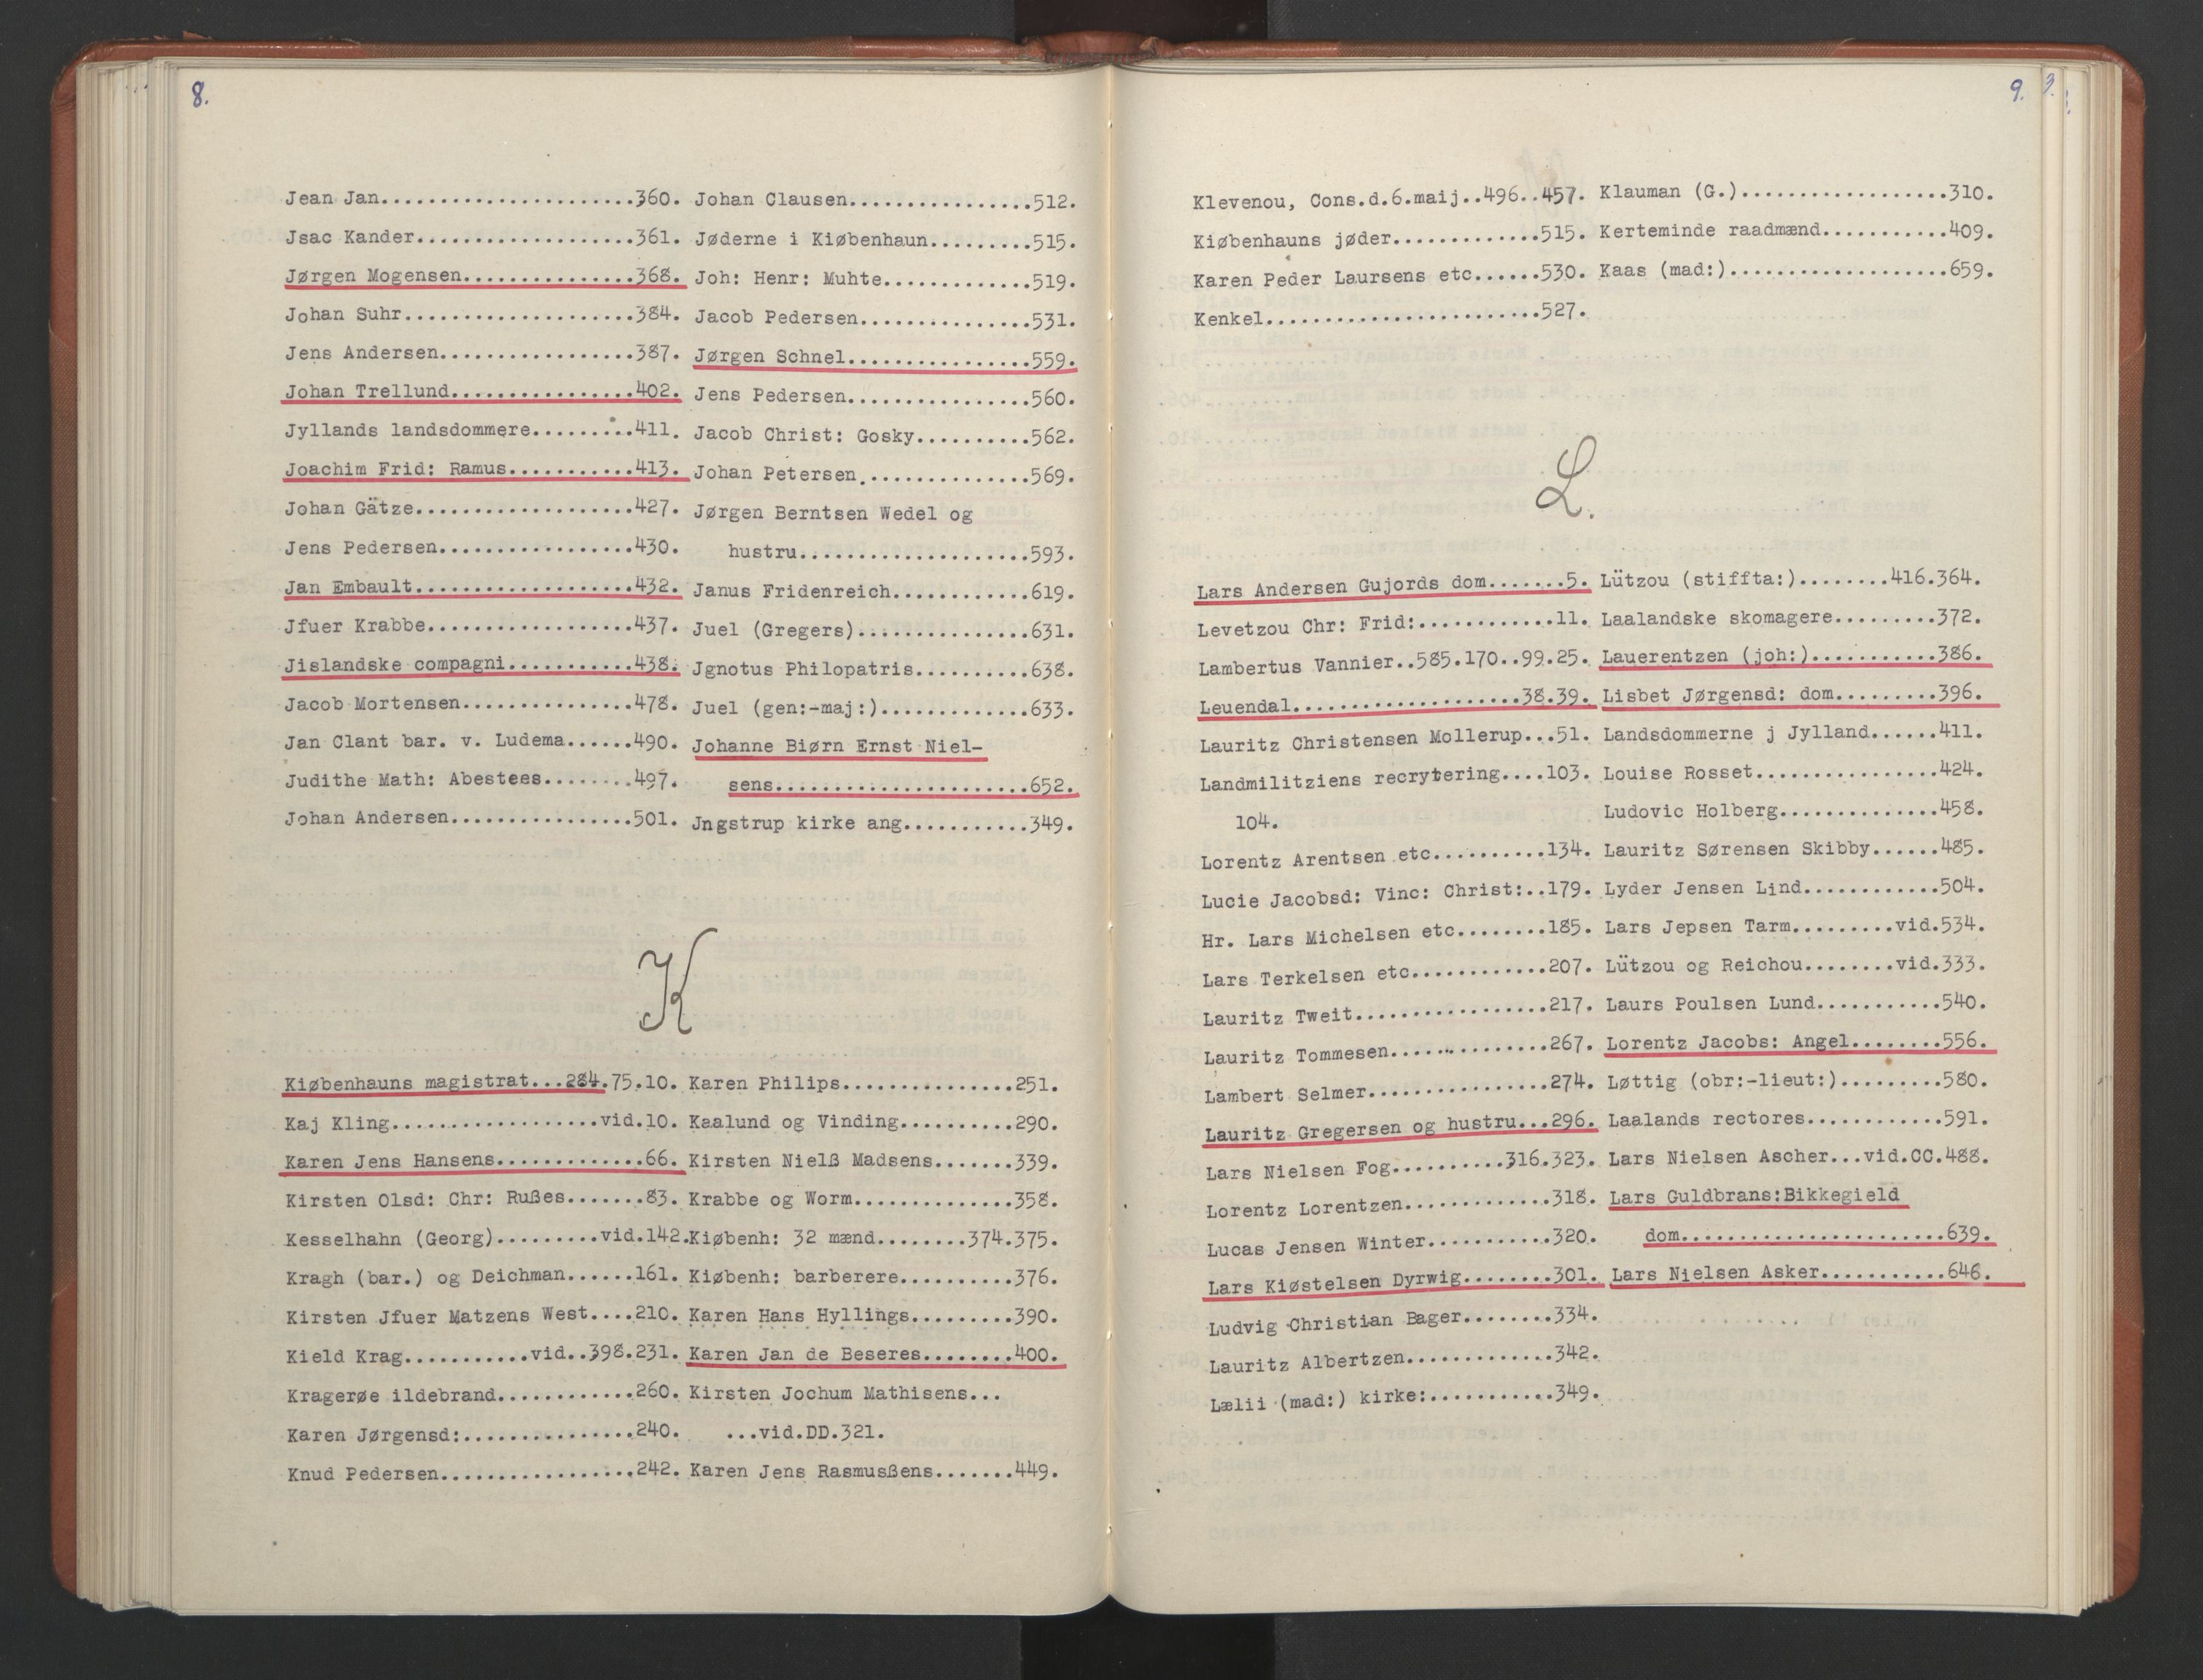 8.
Jean Jan......................360.
Jsac Kander...................361.
Jørgen Mogensen...............368.
Johan Suhr....................384.
Jens Andersen.................387.
Johan Trellund................402.
Jyllands landsdommere.........411.
Joachim Frid: Ramus...........413.
Johan Gätze...................427.
Jens Pedersen.................430.
Jan Embault...................432.
Jfuer Krabbe..................437.
Jislandske compagni...........438.
Jacob Mortensen...............478.
Jan Clant bar. v. Ludema......490.
Judithe Math: Abestees........497.
Johan Andersen................501.
Johan Clausen................512.
Jøderne i Kiøbenhaun.........515.
Joh: Henr: Muhte.............519.
Jacob Pedersen...............531.
Jørgen Schnel................559.
Jens Pedersen................560.
Jacob Christ: Gosky..........562.
Johan Petersen...............569.
Jørgen Berntsen Wedel og
hustru....................593.
Janus Fridenreich............619.
Juel (Gregers)...............631.
Jgnotus Philopatris..........638.
Juel (gen:-maj:).............633.
Johanne Biørn Ernst Niel-
sens......................652.
Jngstrup kirke ang...........349.
K
Kiøbenhauns magistrat...284.75.10.
Kaj Kling..................vid.10.
Karen Jens Hansens.............66.
Kirsten Olsd: Chr: Rußes.......83.
Kesselhahn (Georg).........vid.142.
Kragh (bar.) og Deichman......161.
Kirsten Jfuer Matzens West....210.
Kield Krag...........vid..398.231.
Kragerøe ildebrand............260.
Karen Jørgensd:...............240.
Knud Pedersen.................242.
Karen Philips...............251.
Kaalund og Vinding..........290.
Kirsten Nielß Madsens.......339.
Krabbe og Worm..............358.
Kiøbenh: 32 mænd........374.375.
Kiøbenh: barberere..........376.
Karen Hans Hyllings.........390.
Karen Jan de Beseres........400.
Kirsten Jochum Mathisens...
...vid.DD.321.
Karen Jens Rasmusßens.......449.
9.
Klevenou, Cons.d.6.maij..496..457.
Kiøbenhauns jøder.............515.
Karen Peder Laursens etc......530.
Kenkel........................527.
Klauman (G.)..................310.
Kerteminde raadmænd...........409.
Kaas (mad:)...................659.
L.
Lars Andersen Gujords dom.......5.
Levetzou Chr: Frid:............11.
Lambertus Vannier..585.170..99.25.
Leuendal....................38.39.
Lauritz Christensen Mollerup...51.
Landmilitziens recrytering....103.
104.
Lorentz Arentsen etc..........134.
Lucie Jacobsd: Vinc: Christ:..179.
Hr. Lars Michelsen etc........185.
Lars Terkelsen etc............207.
Lauritz Tweit.................217.
Lauritz Tommesen..............267.
Lambert Selmer................274.
Lauritz Gregersen og hustru...296.
Lars Nielsen Fog..........316.323.
Lorentz Lorentzen.............318.
Lucas Jensen Winter...........320.
Lars Kiøstelsen Dyrwig........301.
Ludvig Christian Bager........334.
Lauritz Albertzen.............342.
Lælii (mad:) kirke:...........349.
Lützou (stiffta:)........416.364.
Laalandske skomagere.........372.
Lauerentzen (joh:)...........386.
Lisbet Jørgensd: dom.........396.
Landsdommerne j Jylland......411.
Louise Rosset................424.
Ludovic Holberg..............458.
Lauritz Sørensen Skibby......485.
Lyder Jensen Lind............504.
Lars Jepsen Tarm.........vid.534.
Lützou og Reichou........vid.333.
Laurs Poulsen Lund...........540.
Lorentz Jacobs: Angel........556.
Løttig (obr:-lieut:).........580.
Laalands rectores............591.
Lars Nielsen Ascher...vid.CC.488.
Lars Guldbrans:Bikkegield
dom.......................639.
Lars Nielsen Asker...........646.